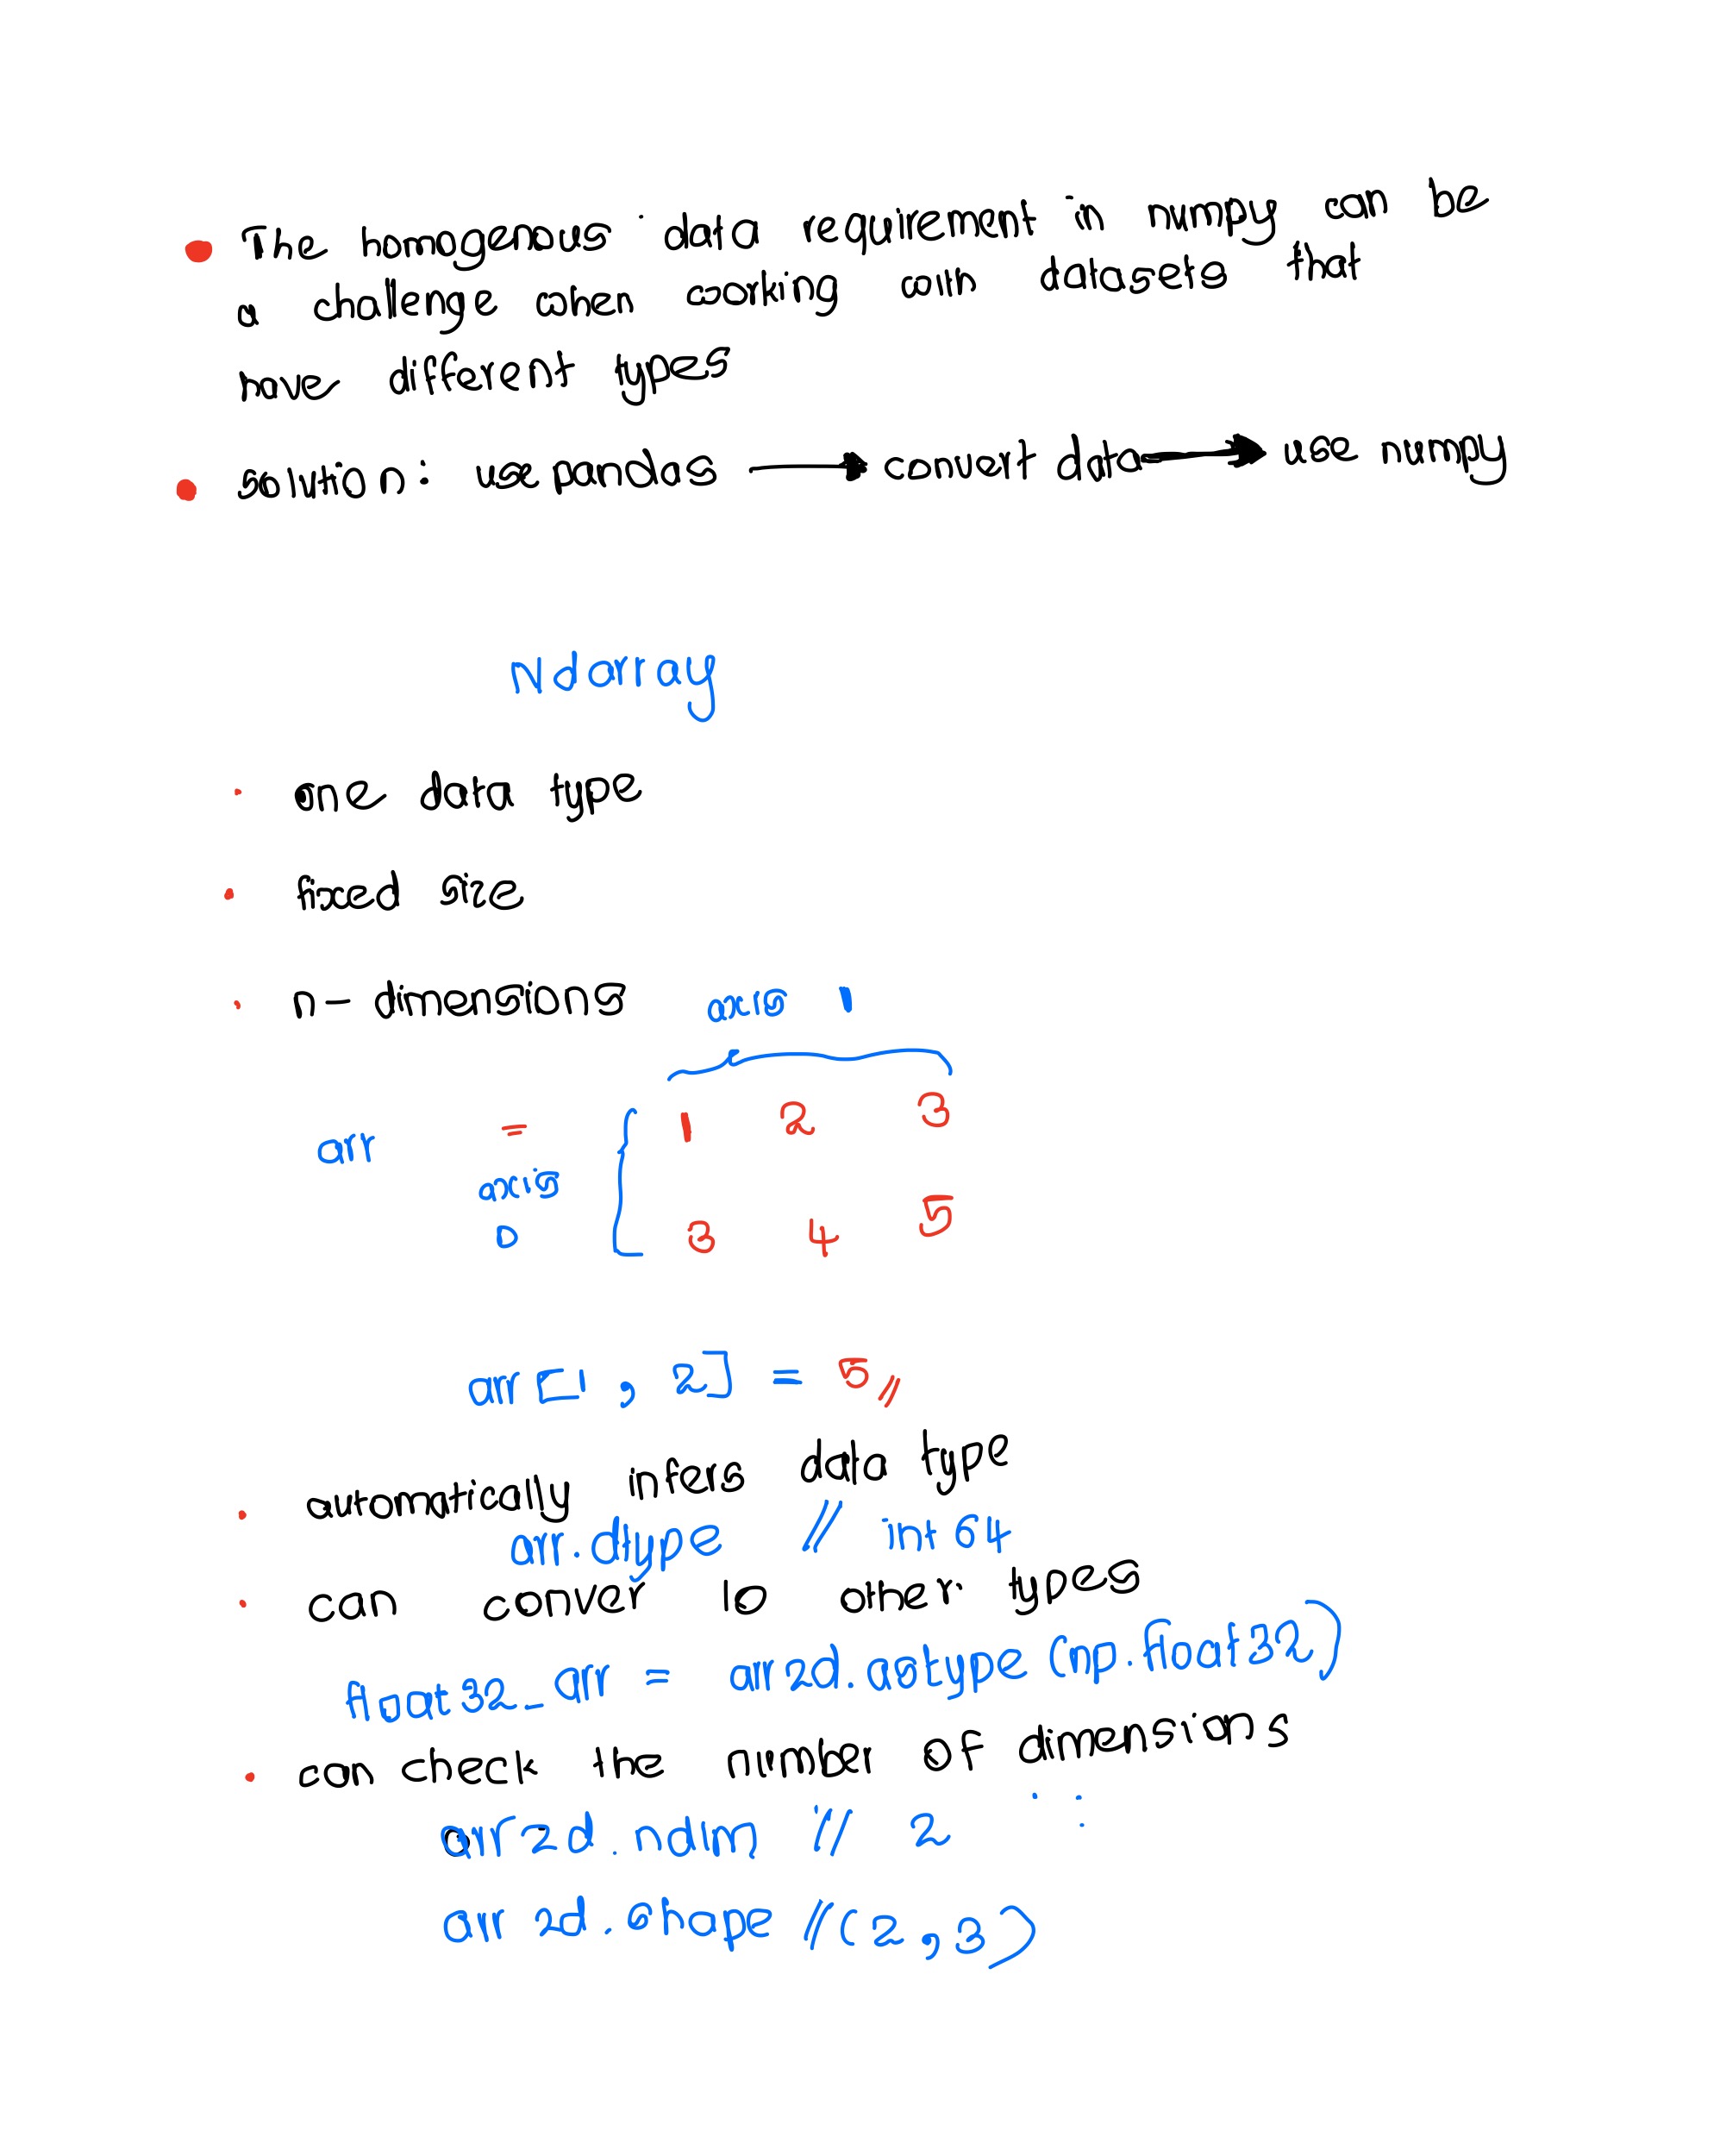 The homogenous data requirement in numpy can be
a challenge when working with datasets that
have different types
solution: use pandas → convert data → use numpy
Ndarray
one data type
fixed size
n-dimensions
axis 1
arr = 1 2 3
axis
0
3 4 5
arr[1, 2] = 5//
automatically infers data type
arr.dtype // int64
can conver to other types
float32_arr = arr2d.astype(np.float32)
can check the number of dimensions
arr2d.ndim // 2
arr2d.shape //(2,3)